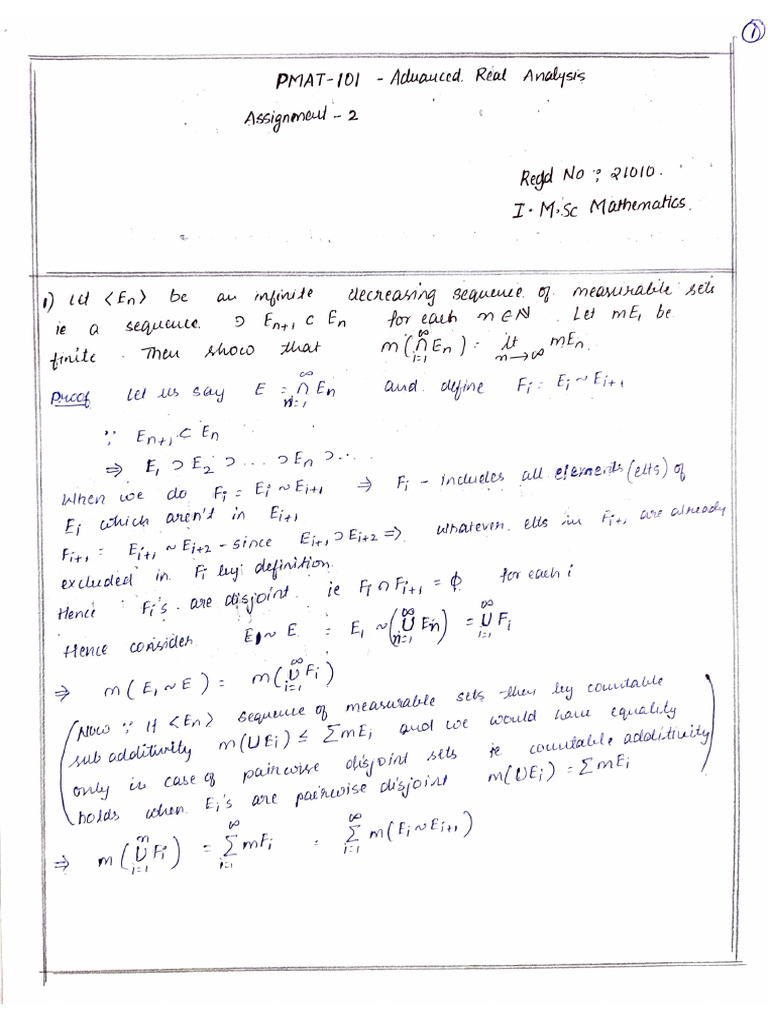 ①
PMAT-101 - Advanced Real Analysis
Assignment - 2
Regd No : 21010.
I. M.Sc Mathematics.
1) Let <En> be an infinite decreasing sequence of measurable sets
ie a sequence ∋ En+1 ⊂ En for each n∈N. Let mE1 be
finite. Then show that m(∩_{i=1}^{∞} En) = lt_{n→∞} mEn.
Proof Let us say E = ∩_{n=1}^{∞} En and define Fi = Ei ~ Ei+1
∵ En+1 ⊂ En
⇒ E1 ⊃ E2 ⊃ ... ⊃ En ⊃ ...
When we do Fi = Ei ~ Ei+1 ⇒ Fi - includes all elements (elts) of
Ei which aren't in Ei+1
Fi+1 = Ei+1 ~ Ei+2 - since Ei+1 ⊃ Ei+2 ⇒ whatever elts in Fi+1 are already
excluded in Fi by definition.
Hence Fi's are disjoint ie Fi ∩ Fi+1 = φ for each i
Hence consider E1 ~ E = E1 ~ (∪_{n=1}^{∞} En) = ∪_{i=1}^{∞} Fi
⇒ m(E1 ~ E) = m(∪_{i=1}^{∞} Fi)
(Now ∵ If <En> sequence of measurable sets then by countable
sub additivity m(∪Ei) ≤ ∑mEi and we would have equality
only in case of pairwise disjoint sets ie countable additivity
holds when Ei's are pairwise disjoint m(∪Ei) = ∑mEi)
⇒ m(∪_{i=1}^{n} Fi) = ∑_{i=1}^{∞} mFi = ∑_{i=1}^{∞} m(Ei ~ Ei+1)